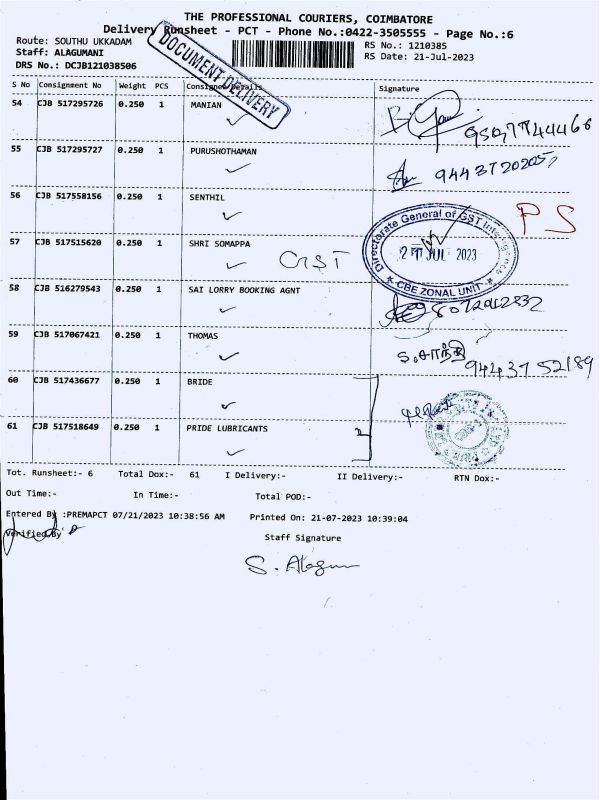 THE PROFESSIONAL COURIERS, COIMBATORE
Delivery Runsheet - PCT - Phone No.:0422-3505555 - Page No.:6
Route: SOUTHU UKKADAM
RS No.: 1210385
Staff: ALAGUMANI
RS Date: 21-Jul-2023
DRS No.: DCJB121038506
DOCUMENT DELIVERY
S No Consignment No Weight PCS Consignee Details Signature
54 CJB 517295726 0.250 1 MANIAN
55 CJB 517295727 0.250 1 PURUSHOTHAMAN
56 CJB 517558156 0.250 1 SENTHIL
PS
57 CJB 517515620 0.250 1 SHRI SOMAPPA
GST
Directorate General of GST
JUL 2023
CBE ZONAL UNIT
58 CJB 516279543 0.250 1 SAI LORRY BOOKING AGNT
59 CJB 517067421 0.250 1 THOMAS
9443752189
60 CJB 517436677 0.250 1 BRIDE
61 CJB 517518649 0.250 1 PRIDE LUBRICANTS
Tot. Runsheet:- 6 Total Dox:- 61 I Delivery:- II Delivery:- RTN Dox:-
Out Time:- In Time:- Total POD:-
Entered By :PREMAPCT 07/21/2023 10:38:56 AM Printed On: 21-07-2023 10:39:04
Verified By
Staff Signature